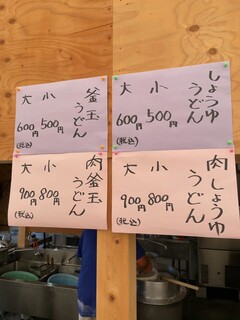 しょうゆ
うどん
小 500円
大 600円
(税込)
釜玉
うどん
小 500円
大 600円
(税込)
肉しょうゆ
うどん
小 800円
大 900円
(税込)
肉釜玉
うどん
小 800円
大 900円
(税込)